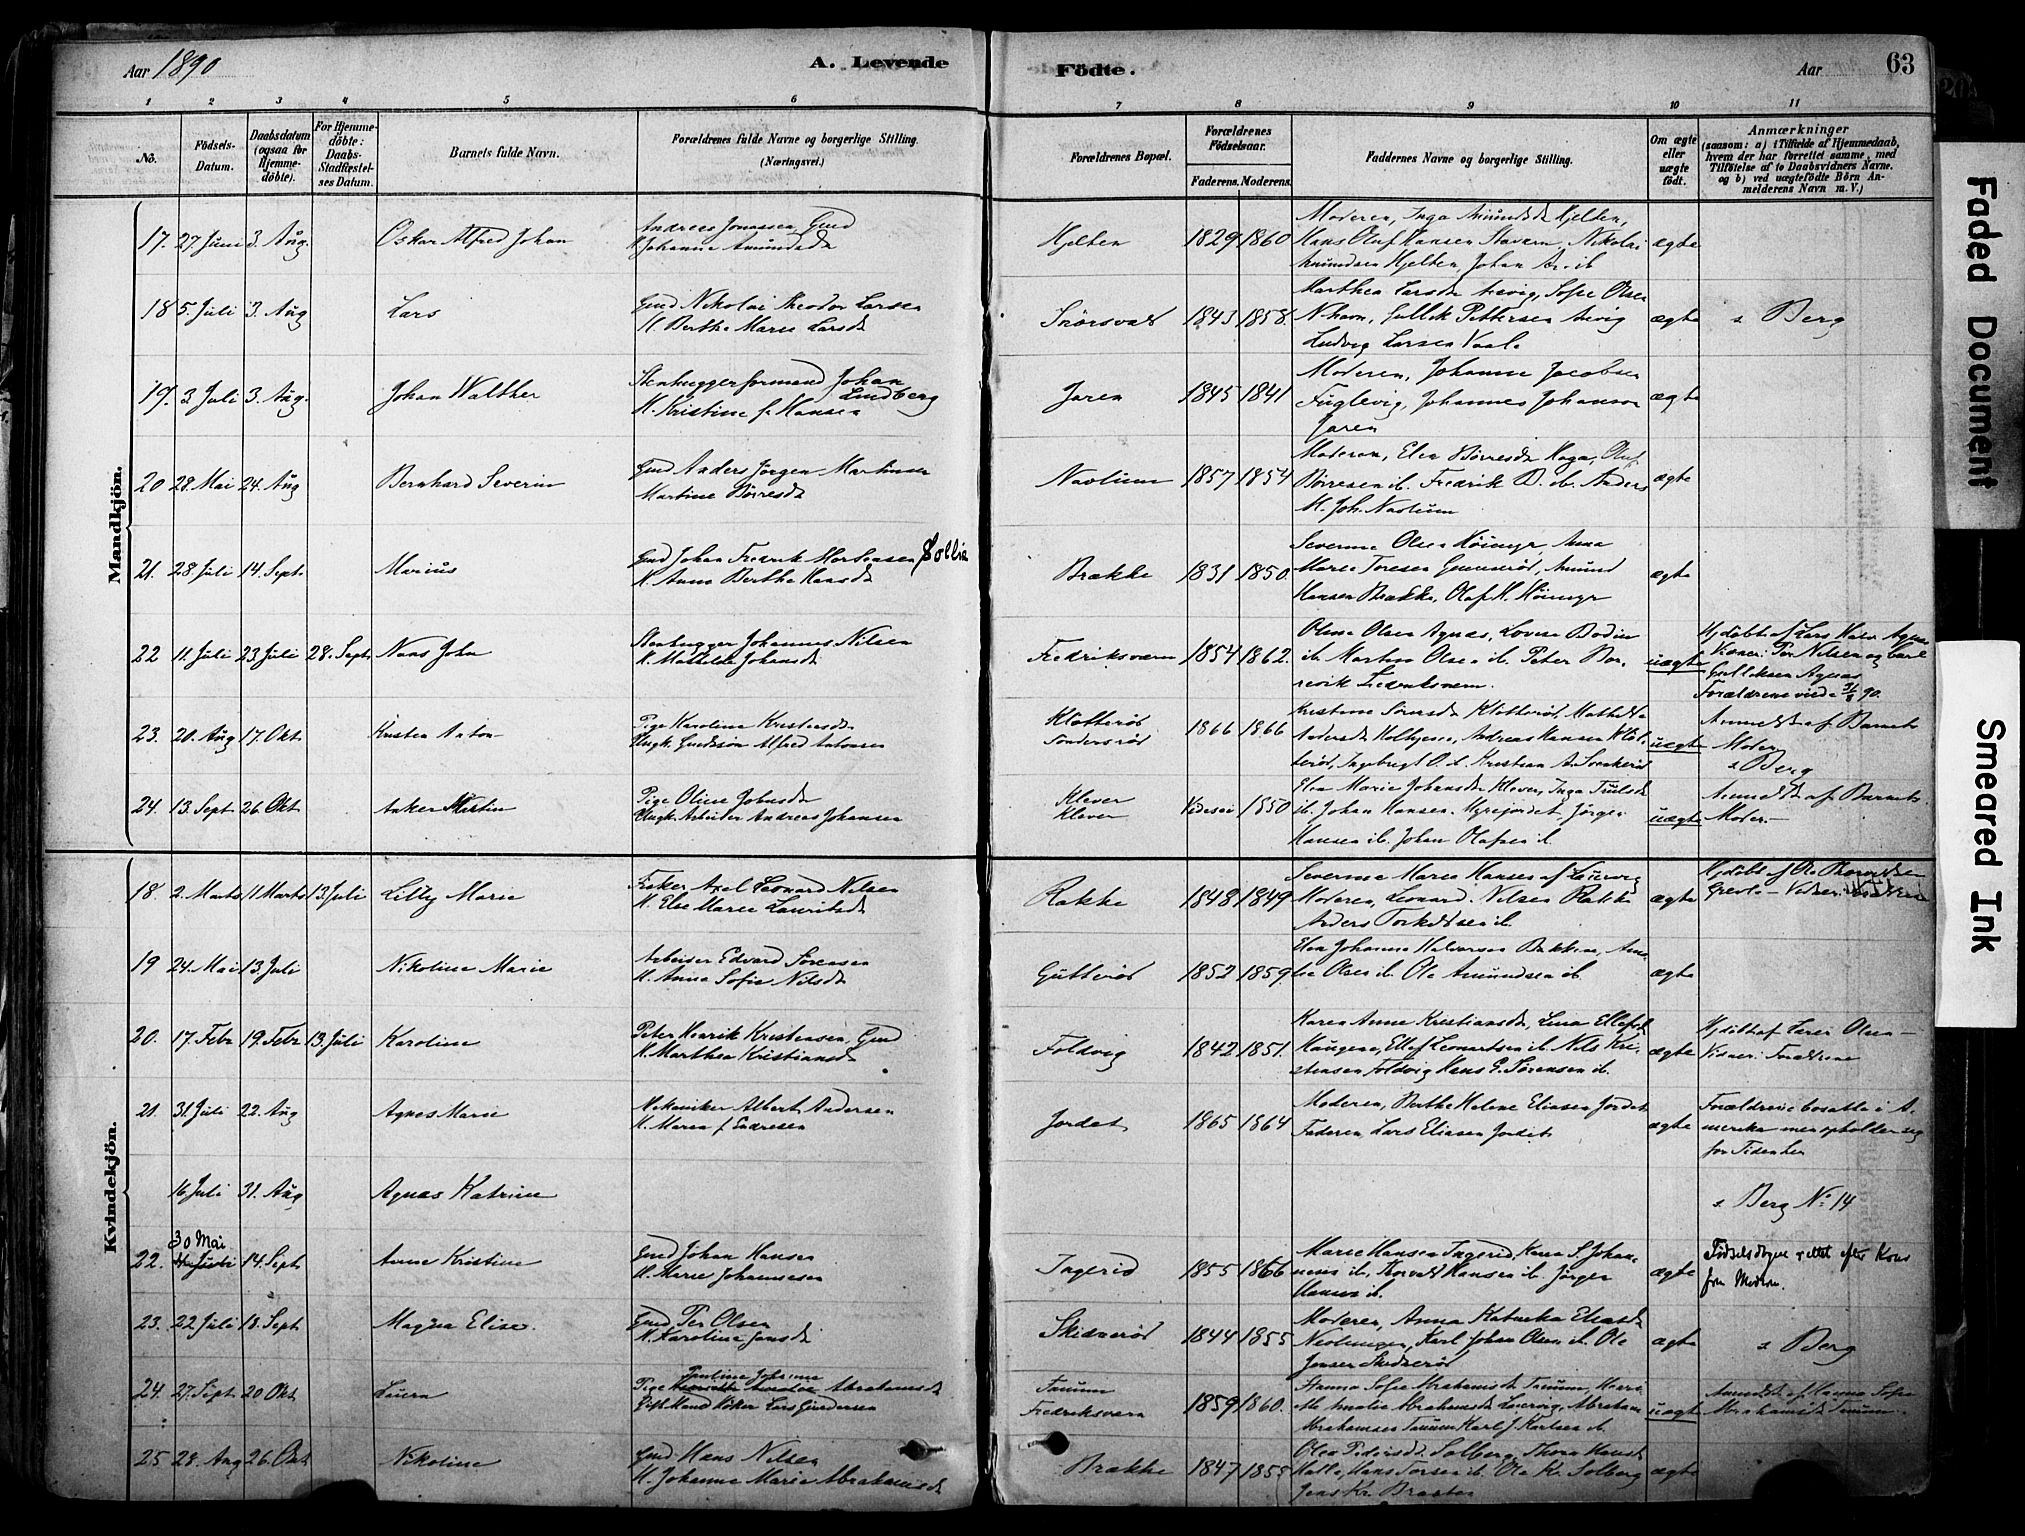 Aar 1890
A. Levende
Födte.
Aar
63
1 2 3 4 5 6 7 8 9 10 11
No.
Födsels-Datum.
Daabsdatum (ogsaa for Hjemme-döbte).
For Hjemme-döbte: Daabs-Stadfæstel-ses Datum.
Barnets fulde Navn.
Forældrenes fulde Navne og borgerlige Stilling.
(Næringsvei.)
Forældrenes Bopæl.
Forældrenes Födselsaar.
Faderens. Moderens.
Faddernes Navne og borgerlige Stilling.
Om ægte eller uægte födt.
Anmærkninger
(saasom: a) i Tilfælde af Hjemmedaab, hvem der har forrettet samme, med Tilföielse af to Daabsvidners Navne. og b) ved uægtefödte Börn Anmelderens Navn m. V.)
Mandkjön.
17. 27 Juni 3. Aug. Oskar Alfred Johan
Andreas Jonassen Gmd
Johanne Amundsd
Hjelten 1829 1860
Moderen, Inga Amundsd Hjelten,
Hans Olaf Hansen Stavern, Nikolai
Amundsen Hjelten, Johan A. ib
ægte
18 5 Juli 3. Aug Lars
Gmd Nikolai Theodor Larsen
H. Berthe Marie Larsd
1843 1858.
Marthea Larsd Sofie Olsen
Nhavn, Gullik Pettersen
Ludvig Larsen
ægte s Berg
19. 3 Juli 3. Aug. Johan Walther
Stenhuggerformand Johan Lindberg
H. Kristine f. Hansen
Jaren 1845 1841
Moderen, Johanne Jacobsen
Fuglevig, Johannes Johanson
Jaren
ægte
20 28. Mai 24. Aug Bernhard Severin
Gmd Anders Jörgen Martinsen
Martine Börresd
Navlum 1857 1854
Moderen, Elen Börresd Haga, Oluf
Börresen ib. Fredrik B. ib. Anders
M. Joh. Navlum
ægte
21. 28 Juli 14. Sept. Marius
Gmd Johan Fredrik Mortensen Sollie
H. Anne Berthe Hansd
Brække 1831 1850.
Severine Olsen Höimyr, Anna
Marie Toresen Gunneröd, Amund
Hansen Brække, Olaf H. Höimyr
ægte
22 11. Juli 23 Juli 28. Sept. John
Stenhugger Johannes Nilsen
H. Mathilde Johansd
Fredriksværn 1854 1862.
Oline Olsen Agnæs, Lovise Bodin
ib. Martin Olsen ib. Peter
Fredriksværn.
uægte
Hjdöbt af Lars
Vidner: Per Nilsen og Carl
Gulliksen Agnæs
Forældrene viede 90.
23. 20. Aug 17. Okt Kristen Anton
Pige Karoline Kristensd
Ungk. Gmdssön Alfred Antonsen
Klötteröd
Söndersröd
1866 1866
Kristine Sörensd Klötteröd, Mathilda
Andersd Holhjem, Andreas Hansen Klöt-
teröd, Ingebregt O. d. Kristian A.
uægte
Anmeldt af Barnets
Moder
s Berg
24. 13. Sept 26. Okt Anker Martin
Pige Oline Johnsd
Ungk. Arbeider Andreas Johansen
Klever
Klever
1850
Elen Marie Johansd Klever, Inga
ib. Johan Hansen Myrejordet, Jörgen
Hansen ib. Johan Olafsen ib.
uægte
Anmeldt af Barnets
Moder.
Kvindekjön.
18. 2. Marts 11 Marts 13 Juli Lilly Marie
Fisker Axel Leonard Nilsen
H. Else Marie Lauritsd
Rakke 1848 1849
Severine Marie Hansen af Laurvig
Moderen, Leonard Nilsen Rakke
Anders Torkildsen ib.
ægte
Hjdöbt af
19 24. Mai 13. Juli Nikoline Marie
Arbeider Edvard Sörensen
H. Anna Sofie Nilsd
Gutteröd 1852 1859
Elen Johanne Halvorsen Bakken,
Olsen ib. Ole Amundsen ib.
ægte
20. 17. Febr 19. Febr 13. Juli Karoline
Peter Henrik Kristensen, Gmd
H. Marthea Kristiansd
Foldvig 1842 1851.
Karen Anne Kristiansd, Lina Ellefsd
Haugene, Ellef Leonartsen ib. Nils Kri-
stensen Foldvig Hans G. Sörensen ib.
ægte
Hjdöbt af Olsen
Vidner: Forældrene
21. 31. Juli 22. Aug Agnes Marie
Mekaniker Albert Andersen
H. Maren f Endresen
Jordet 1865 1864
Moderen, Berthe Helene Eliasen Jordet
Faderen Lars Eliasen Jordet
ægte
Forældrene bosatte i A-
merika men opholder sig
for Tiden her
16 Juli 31. Aug Agnes Katrine
s. Berg No. 14
22. 30 Mai 14. Sept Anne Kristine
Gmd Johan Hansen
H. Marie Johannesen
Ingerid 1855 1866
Marie Hansen Ingerid, Karen S. Johan-
nesen ib, Thorvald Hansen ib. Jörgen
Hansen ib.
ægte
Födselsdagen rettet efter
fra Moderen.
23. 22 Juli 18. Sept Magna Elise.
Gmd Per Olsen
H. Karoline Jensd
Skisneröd 1844 1855
Moderen, Anna Katinka Eliasd
Karl Johan Olsen ib. Ole
Jensen Skisneröd
ægte s Berg
24. 27. Sept. 20. Okt Laura
Pauline Johanne
Pige Abrahamsd
Gift Mand Lars Gundersen
Tanum
Fredriksværn
1859 1860.
Hanna Sofie Abrahamsd Tanum,
Amalie Abrahamsd Laurvig, Abraham
Abrahamsen Tanum Karl J. Karlsen ib.
uægte
Anmeldt af Hanna Sofie
Abrahamsd Tanum.
25 28. Aug 26. Okt Nikoline
Gmd Hans Nilsen
H. Johanne Marie Abrahamsd
Brække 1847 1855
Olea Pedersd. Solberg, Thora Hansd
Halle, Hans Torsen ib. Ole K. Solberg
Jens Kr. Braaten
ægte
Faded Document
Smeared Ink